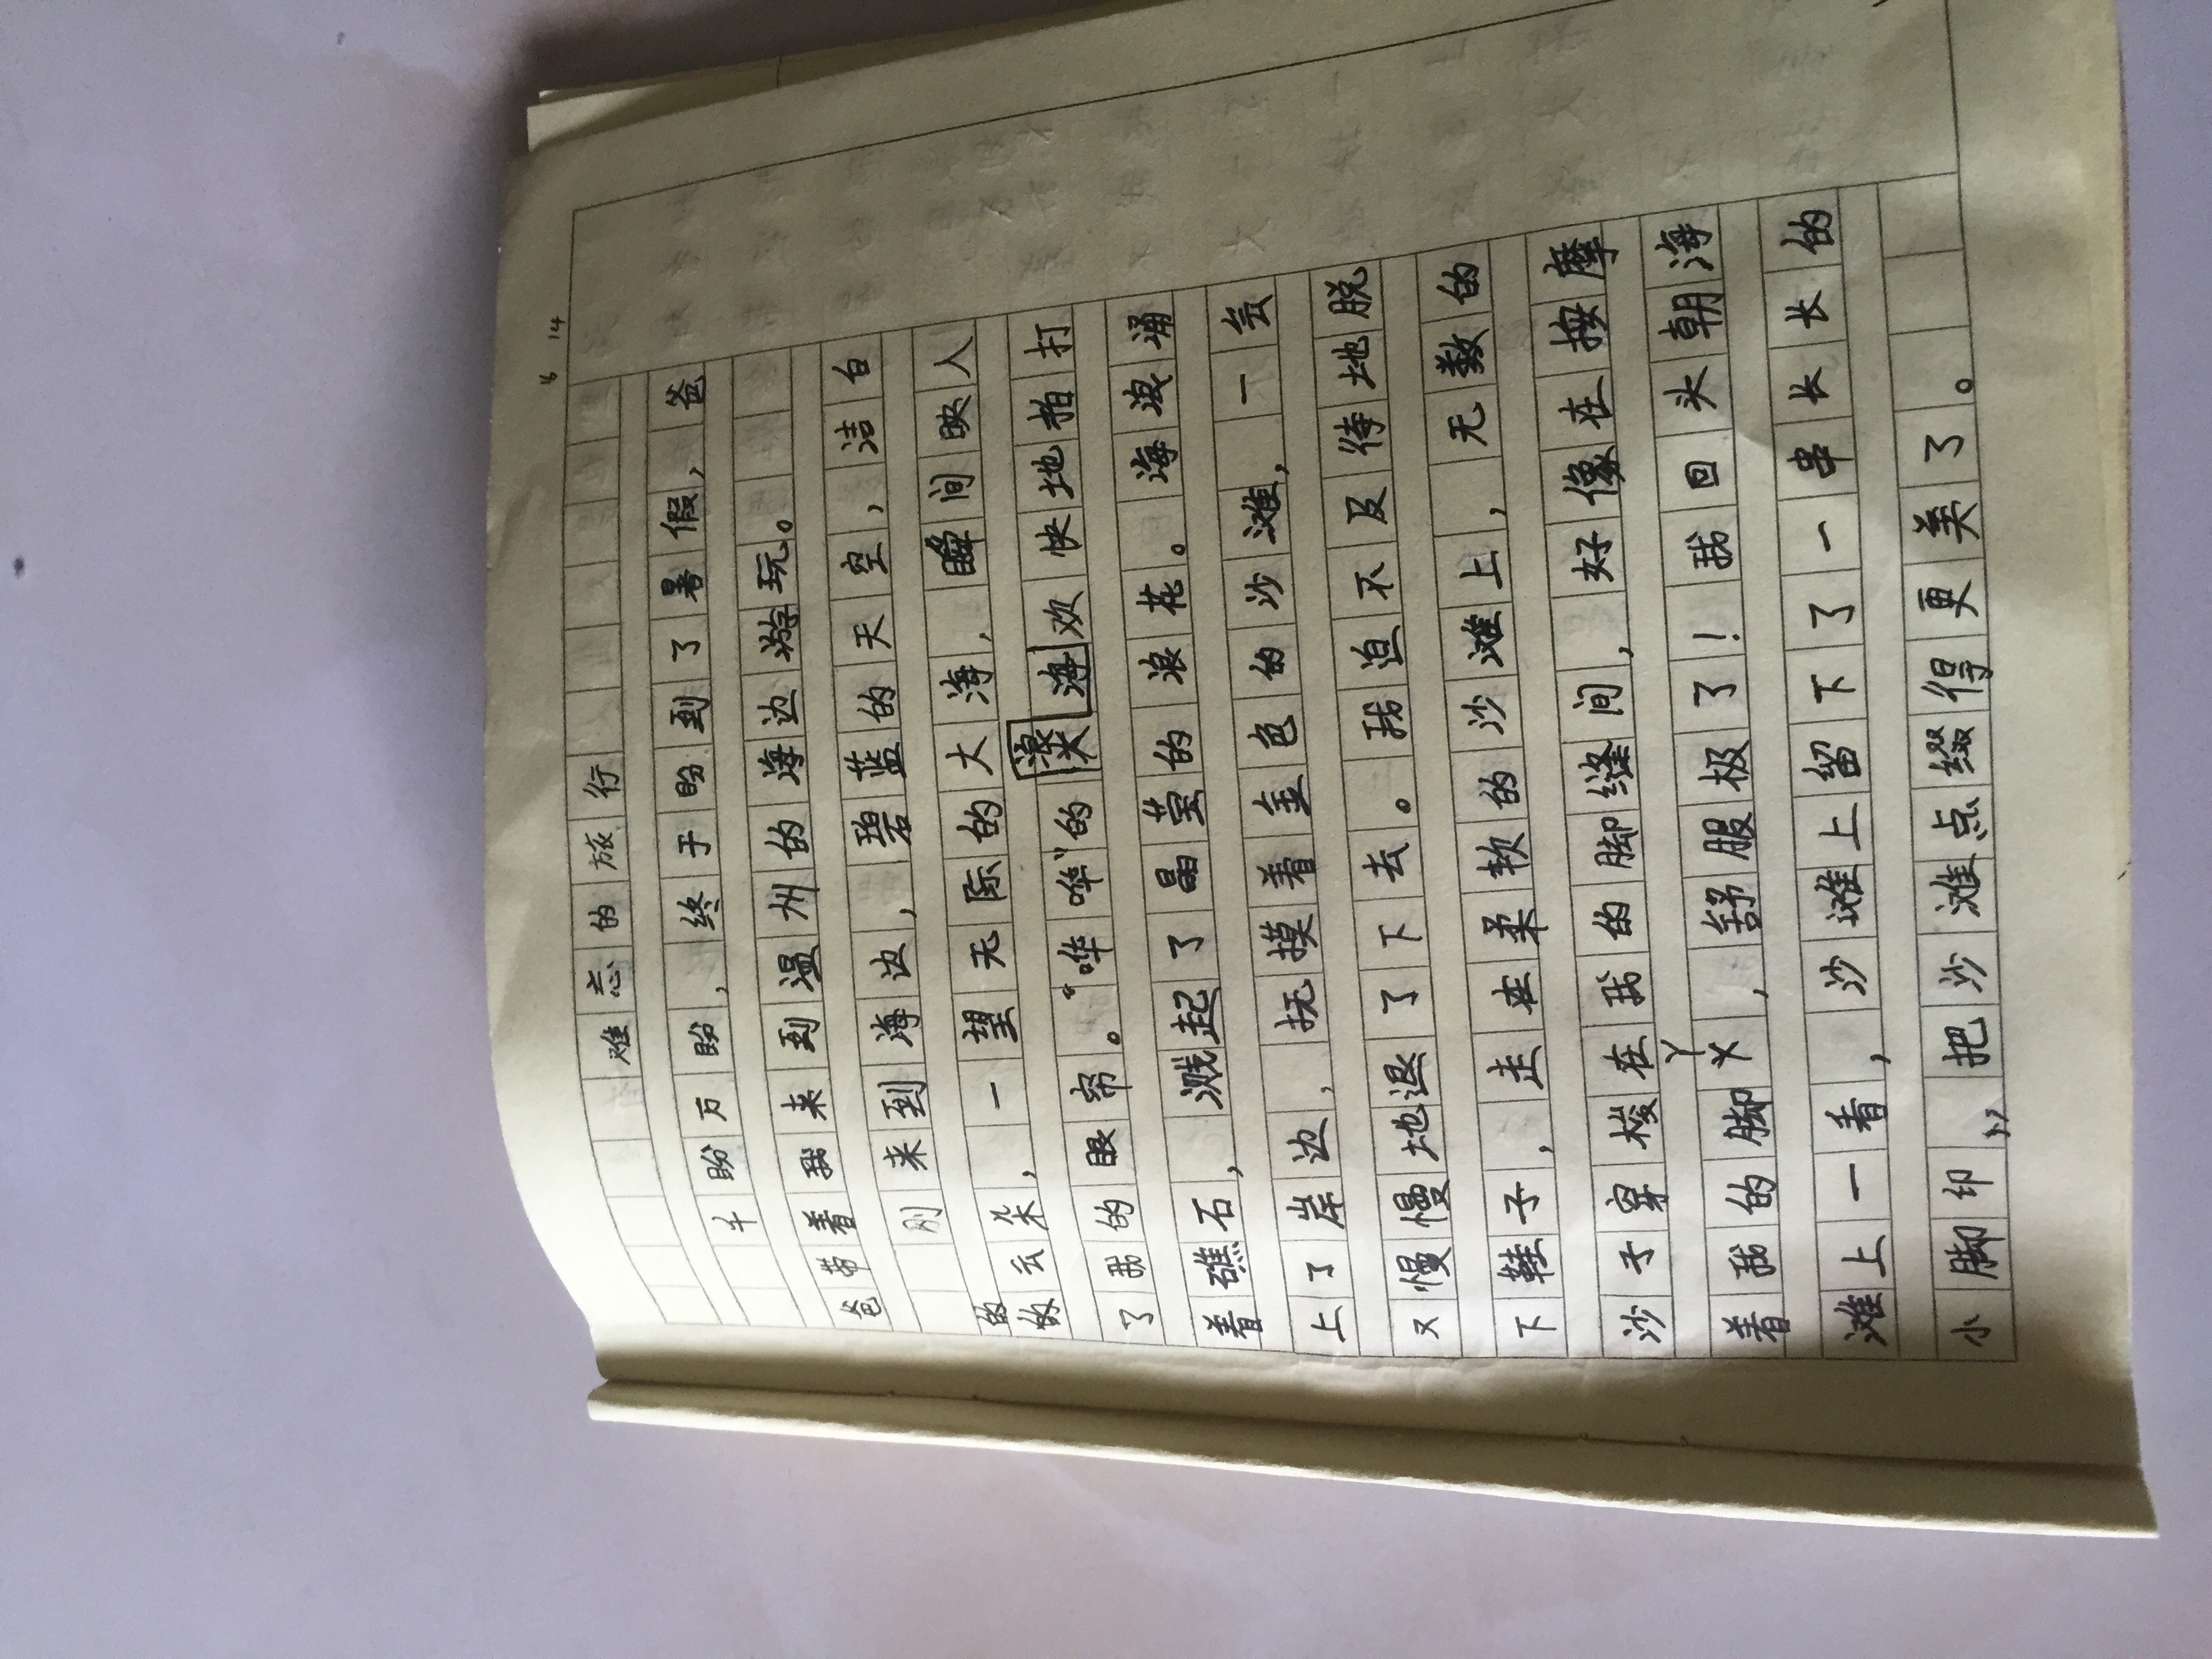 14
难忘的旅行
千盼万盼，终于盼到了暑假，爸
爸带着我来到温州的海边游玩。
刚来到海边，碧蓝的天空，洁白
的云朵，一望无际的大海，瞬间映人
了我的眼帘。“哗哗”的海浪欢快地拍打
着礁石，溅起了晶莹的浪花。海浪涌
上了岸边，抚摸着金色的沙滩，一会
又慢慢地退了下去。我迫不及待地脱
下鞋子，走在柔软的沙滩上，无数的
沙子穿梭在我的脚缝间，好像在按摩
着我的脚丫，舒服极了！我回头朝海
滩上一看，沙滩上留下了一串长长的
小脚印，把沙滩点缀得更美了。